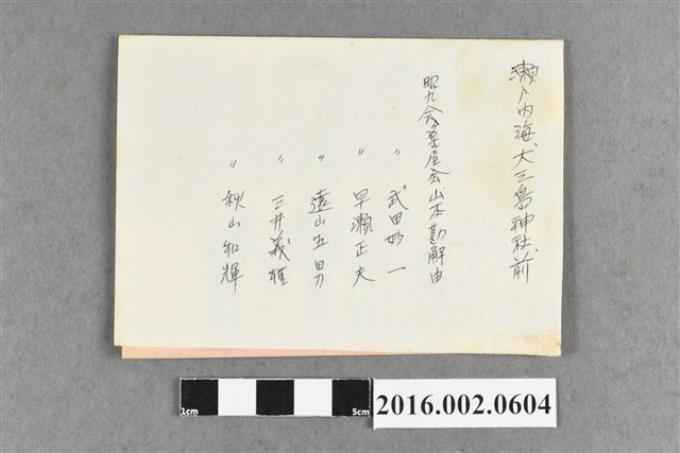 瀬戸内海大三島神社前
昭九会芦屋会山本勘解由
〃 武田妙一
〃 早瀬正夫
〃 遠山五男
〃 三井義雄
〃 秋山和輝
1cm 5cm
2016.002.0604